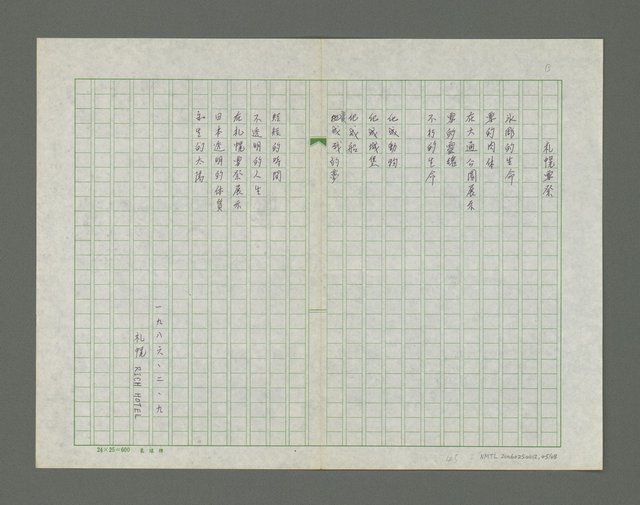 札幌雪祭
冰雕的生命
雪的肉体
在大通公園展示
雪的靈魂
不朽的生命
化成動物
化成城堡
化成船
成我的夢
短短的時間
不透明的人生
在札幌雪祭展示
日本透明的体質
和生的太陽
一九八六、二、九
札幌 RICH HOTEL
24×25=600